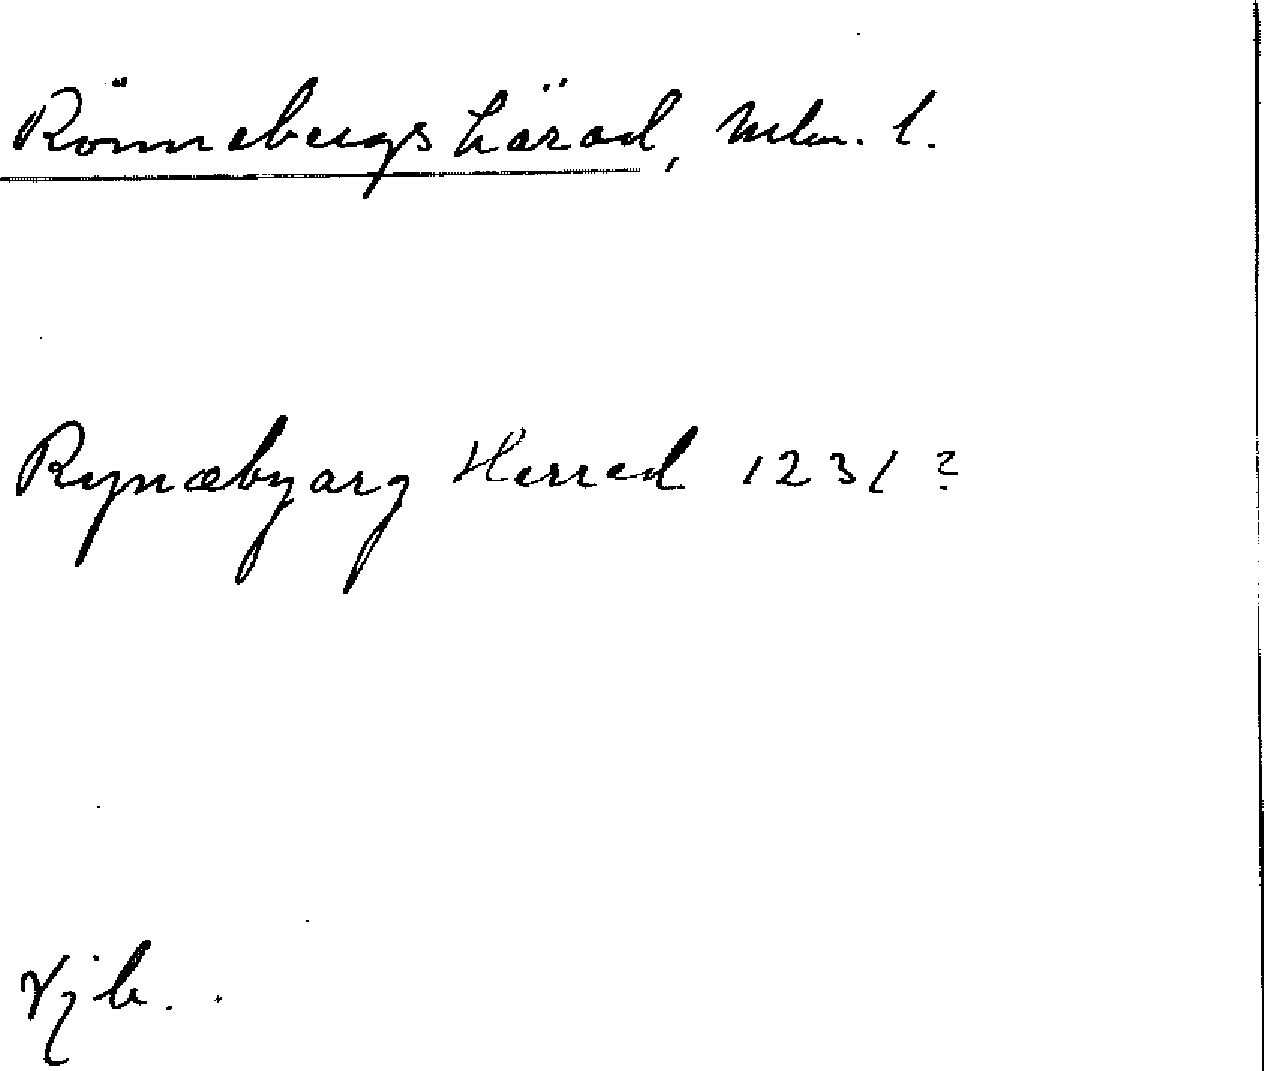 Rönnebergs härad, Mlm. l.
Rynæbyarg Herred 1231?
Vjb.